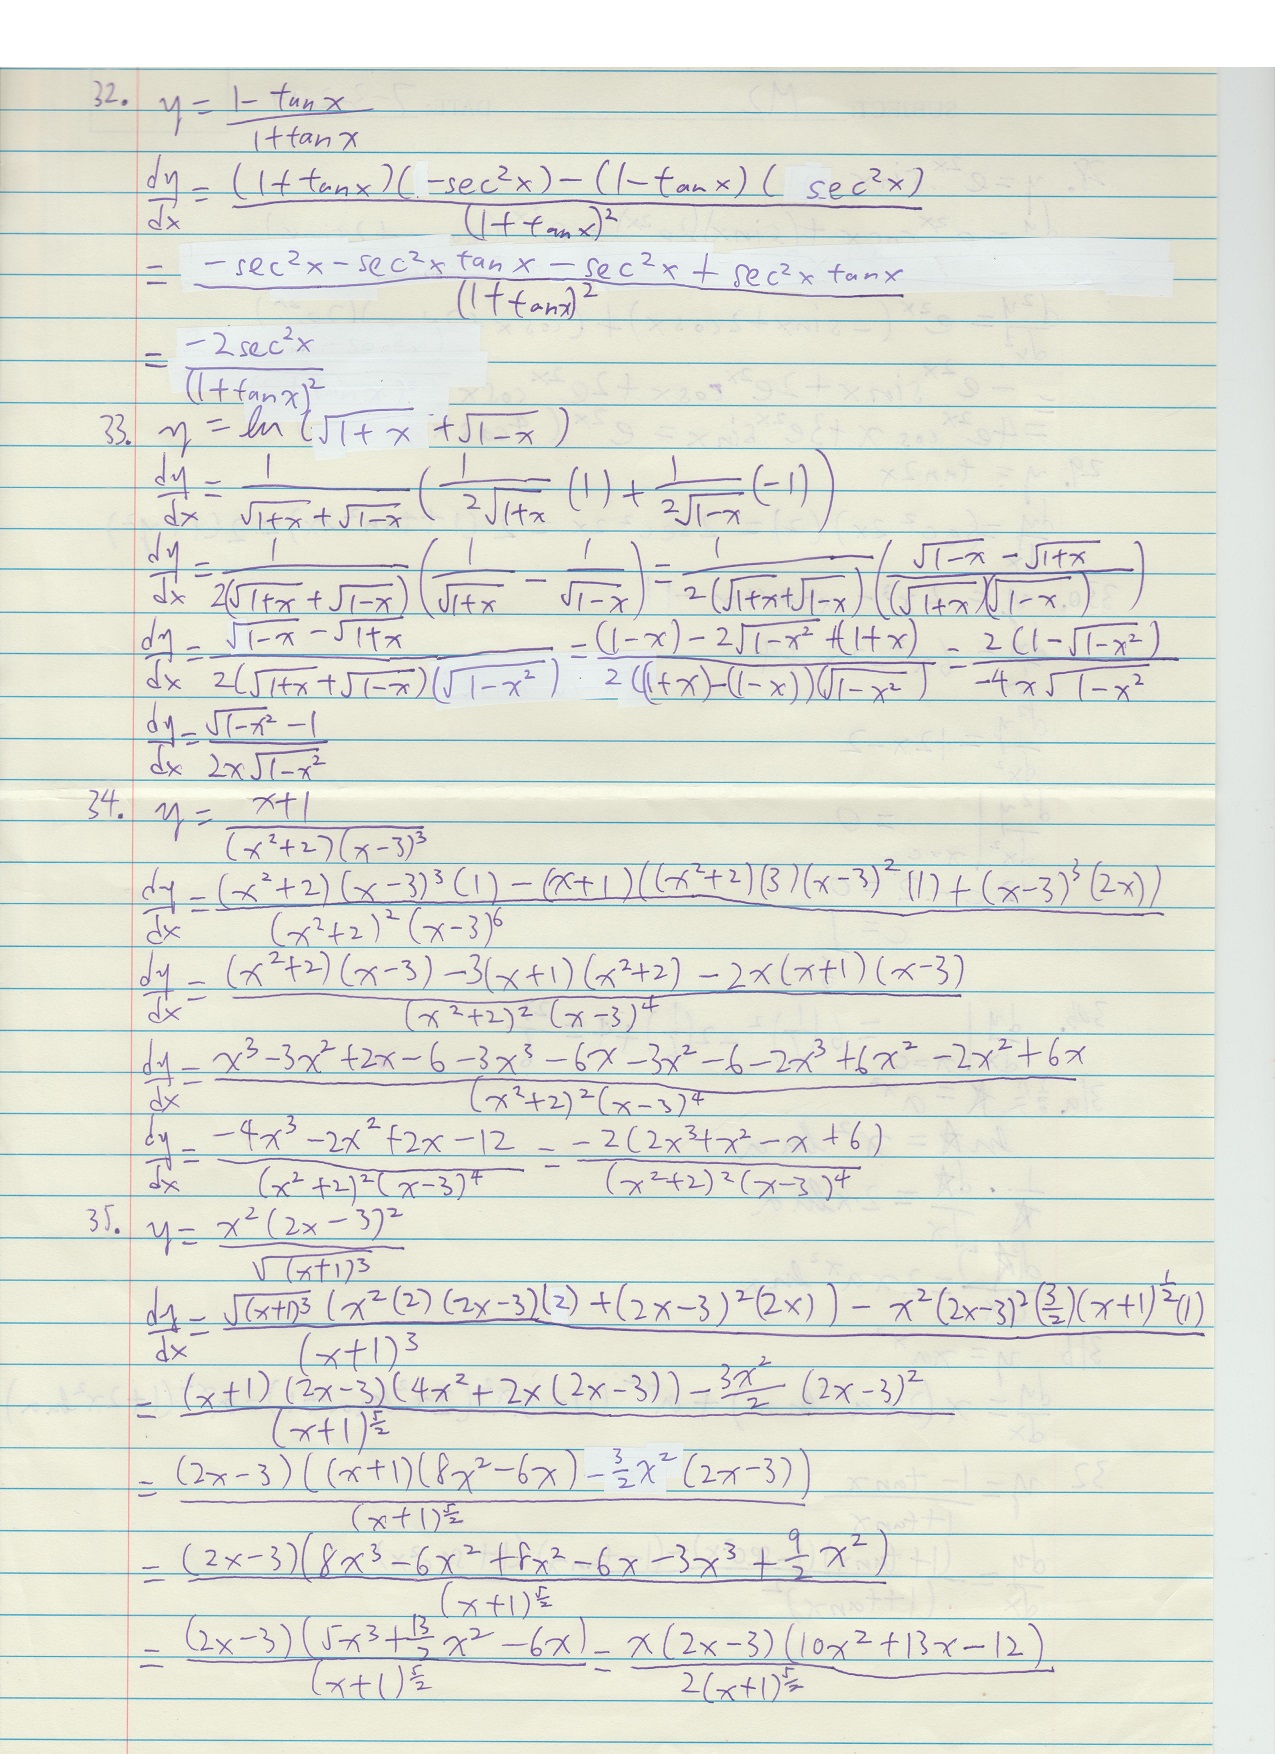 32. y = (1 - tan x)/(1 + tan x)
dy/dx = ((1 + tan x)(-sec²x) - (1 - tan x)(sec²x))/(1 + tan x)²
= (-sec²x - sec²x tan x - sec²x + sec²x tan x)/(1 + tan x)²
= (-2sec²x)/(1 + tan x)²
33. y = ln(√(1+x) + √(1-x))
dy/dx = 1/(√(1+x) + √(1-x)) (1/(2√(1+x)) (1) + 1/(2√(1-x)) (-1))
dy/dx = 1/(2(√(1+x) + √(1-x))) (1/√(1+x) - 1/√(1-x)) = 1/(2(√(1+x) + √(1-x))) ((√(1-x) - √(1+x))/((√(1+x))(√(1-x))))
dy/dx = (√(1-x) - √(1+x))/(2(√(1+x) + √(1-x))(√(1-x²))) = ((1-x) - 2√(1-x²) + (1+x))/(2((1+x)-(1-x))(√(1-x²))) = (2(1-√(1-x²)))/(-4x√(1-x²))
dy/dx = (√(1-x²) - 1)/(2x√(1-x²))
34. y = (x+1)/((x²+2)(x-3)³)
dy/dx = ((x²+2)(x-3)³(1) - (x+1)((x²+2)(3)(x-3)²(1) + (x-3)³(2x)))/((x²+2)²(x-3)⁶)
dy/dx = ((x²+2)(x-3) - 3(x+1)(x²+2) - 2x(x+1)(x-3))/((x²+2)²(x-3)⁴)
dy/dx = (x³ - 3x² + 2x - 6 - 3x³ - 6x - 3x² - 6 - 2x³ + 6x² - 2x² + 6x)/((x²+2)²(x-3)⁴)
dy/dx = (-4x³ - 2x² + 2x - 12)/((x²+2)²(x-3)⁴) = (-2(2x³ + x² - x + 6))/((x²+2)²(x-3)⁴)
35. y = (x²(2x-3)²)/√((x+1)³)
dy/dx = (√((x+1)³) (x²(2)(2x-3)(2) + (2x-3)²(2x)) - x²(2x-3)²(3/2)(x+1)^(1/2)(1))/(x+1)³
= ((x+1)(2x-3)(4x² + 2x(2x-3)) - 3x²/2 (2x-3)²)/(x+1)^(5/2)
= ((2x-3)((x+1)(8x²-6x) - 3/2 x²(2x-3)))/(x+1)^(5/2)
= ((2x-3)(8x³ - 6x² + 8x² - 6x - 3x³ + 9/2 x²))/(x+1)^(5/2)
= ((2x-3)(5x³ + 13/2 x² - 6x))/(x+1)^(5/2) = (x(2x-3)(10x² + 13x - 12))/(2(x+1)^(5/2))